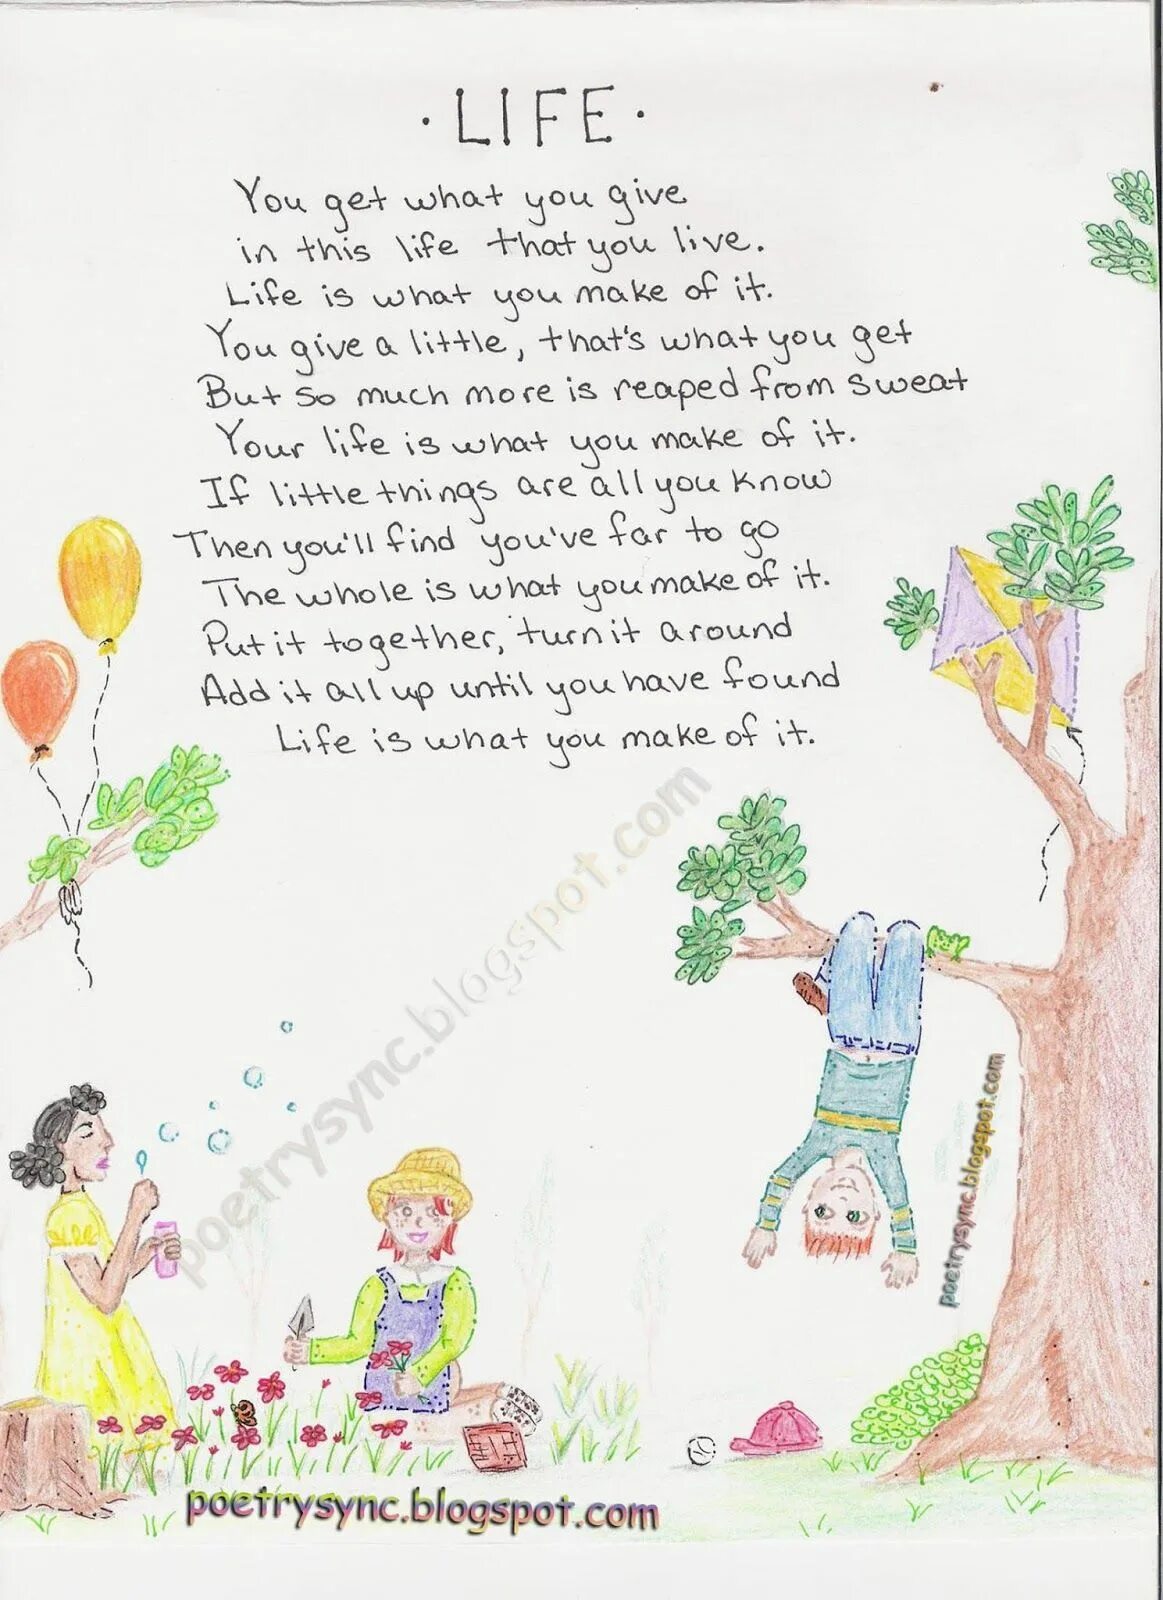 · LIFE ·
You get what you give
in this life that you live.
Life is what you make of it.
You give a little, that's what you get
But so much more is reaped from sweat
Your life is what you make of it.
If little things are all you know
Then you'll find you've far to go
The whole is what you make of it.
Put it together, turn it around
Add it all up until you have found
Life is what you make of it.
poetrysync.blogspot.com
poetrysync.blogspot.com
poetrysync.blogspot.com